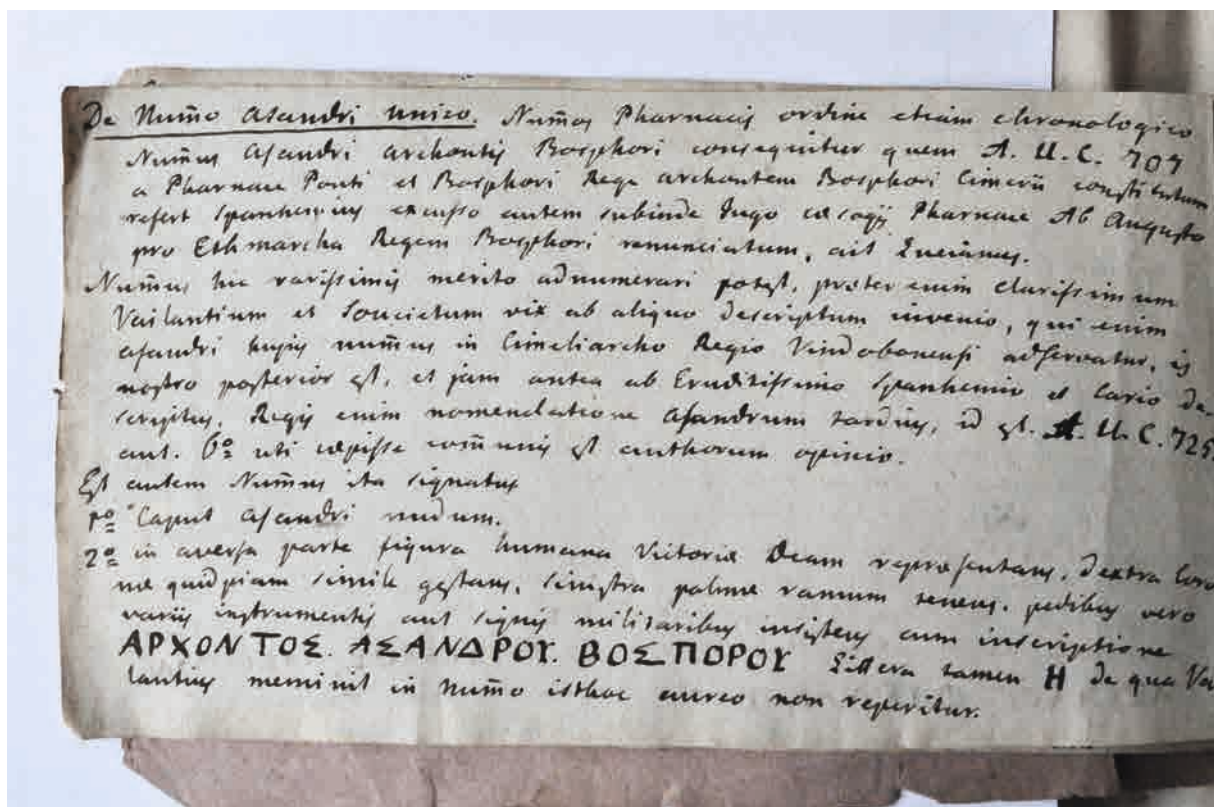 De Num̄o Asandri unico. Num̄os Pharnacis ordine etiam chronologico
Num̄us Asandri Archontis Bosphori consequitur quem A. U. C. 707
a Pharnace Ponti et Bosphori Rege archontem Bosphori Cimerii constitutum
refert Spanhemius excusso autem subinde Jugo Pharnace Ab Augusto
pro Ethnarcha Regem Bosphori renunciatum, ait Lucianus.
Num̄us hic rarissimis merito adnumerari potest, prӕter enim Clarissimum
Vailantium et Soucietum vix ab aliquo descriptum invenio, qui enim
Asandri hujus num̄us in Cimeliarcho Regio Vindobonensi adservatur, is
nostro posterior est, et jam antea ab Eruditissimo Spanhemio et Cario de-
scriptus, Regis enim nomenclatione Asandrum tardius, id est. A. U. C. 725.
aut. 6º uti cӕpisse com̄unis est authorum opinio.
Est autem Num̄us ita signatus
pº Caput Asandri nudum.
2º in aversa parte figura humana Victoriӕ Deam reprӕsentans, dextra Coro
nӕ quidpiam simile gestans, sinistra palmӕ ramum tenens, pedibus vero
variis instrumentis aut signis militaribus insistens cum inscriptione
ΑΡΧΟΝΤΟΣ. ΑΣΑΝΔΡΟΥ. ΒΟΣΠΟΡΟΥ Littera tamen H de qua Va
lantius meminit in Num̄o isthoc aureo non reperitur.